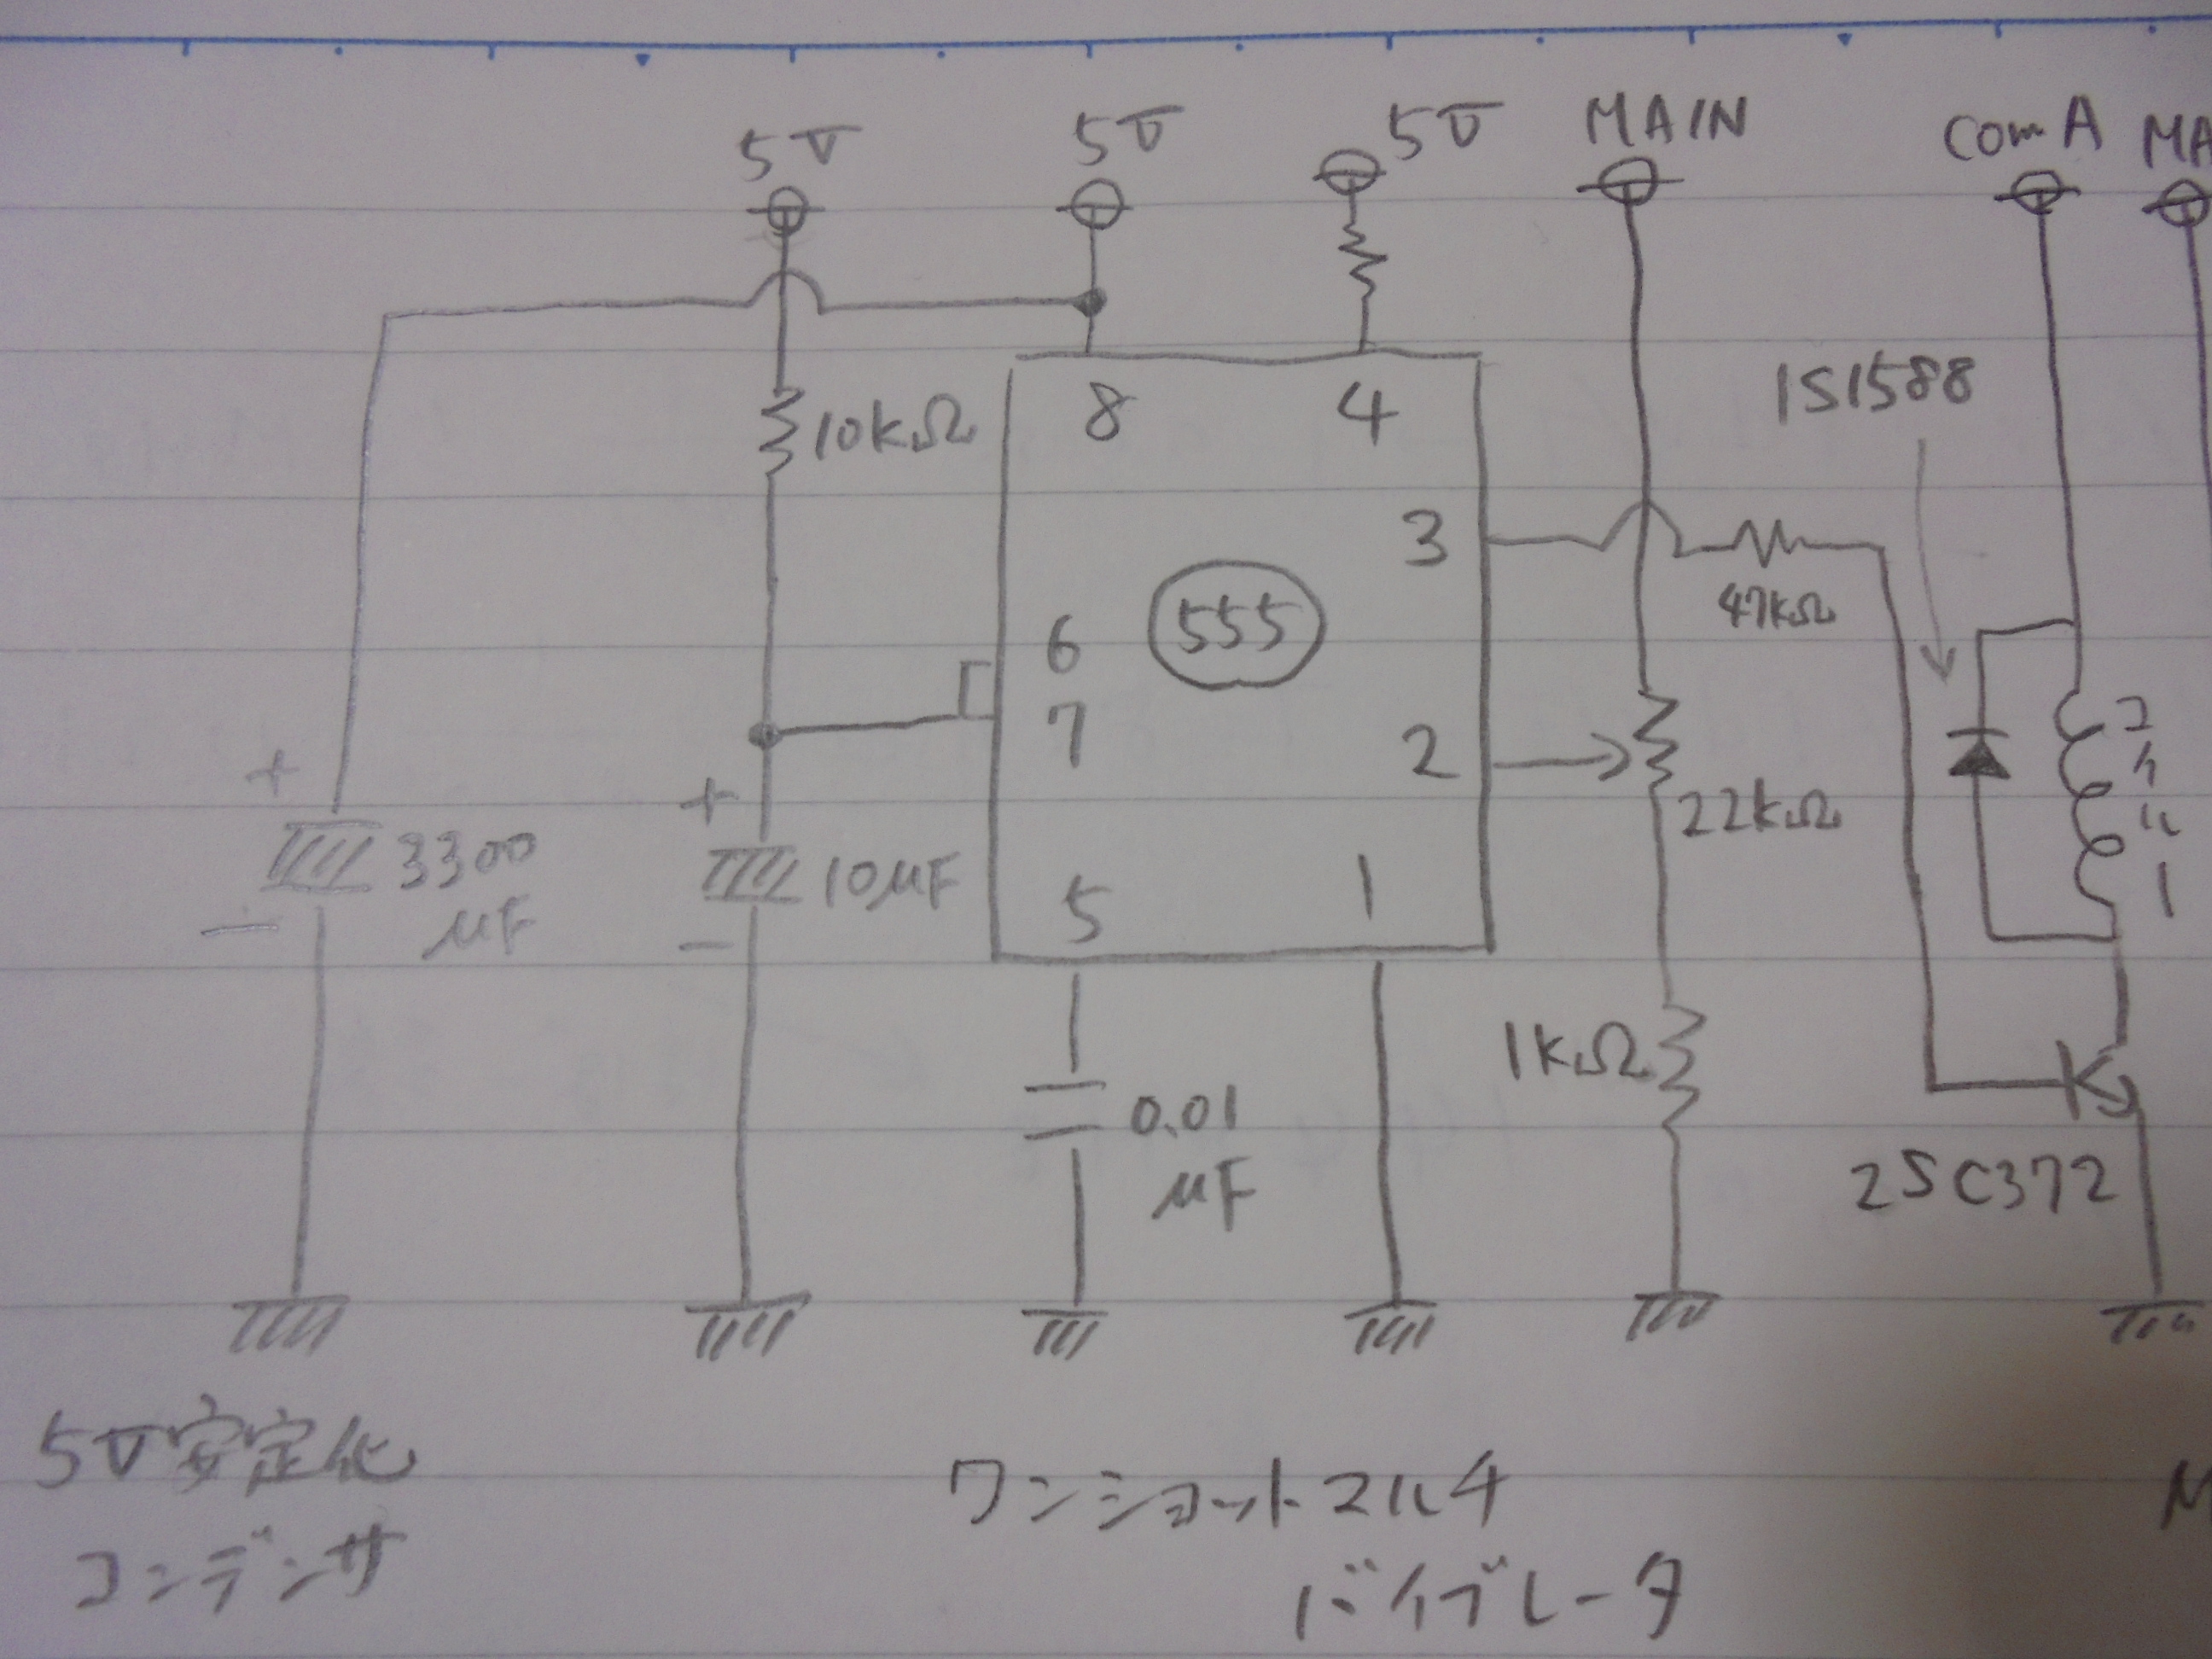 5V
5V
5V
MAIN
Com A
MA
10kΩ
8
4
1S1588
3
47kΩ
555
6
7
2
22kΩ
+
+
3300
μF
10μF
5
1
−
−
1kΩ
0.01
μF
2SC372
5V安定化
コンデンサ
ワンショットマルチ
バイブレータ
M